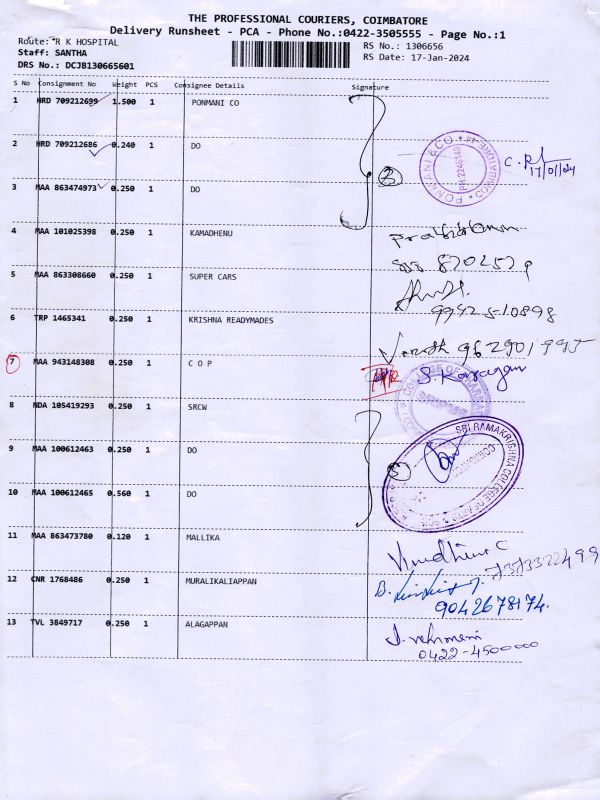 THE PROFESSIONAL COURIERS, COIMBATORE
Delivery Runsheet - PCA - Phone No.:0422-3505555 - Page No.:1
Route: R K HOSPITAL
Staff: SANTHA
DRS No.: DCJB130665601
RS No.: 1306656
RS Date: 17-Jan-2024
S No Consignment No Weight PCS Consignee Details Signature
1 HRD 709212699 1.500 1 PONMANI CO
2 HRD 709212686 0.240 1 DO
PONMANI & CO COIMBATORE
PH: 2246149
17/01/24
3 MAA 863474973 0.250 1 DO
4 MAA 101025398 0.250 1 KAMADHENU
5 MAA 863308660 0.250 1 SUPER CARS
6 TRP 1465341 0.250 1 KRISHNA READYMADES
7 MAA 943148308 0.250 1 C O P
COLLEGE OF
8 NDA 105419293 0.250 1 SRCW
SRI RAMAKRISHNA COLLEGE OF ARTS &
9 MAA 100612463 0.250 1 DO
10 MAA 100612465 0.560 1 DO
11 MAA 863473780 0.120 1 MALLIKA
7373322499
12 CNR 1768486 0.250 1 MURALIKALIAPPAN
9042678174.
13 TVL 3849717 0.250 1 ALAGAPPAN
0422-4500000